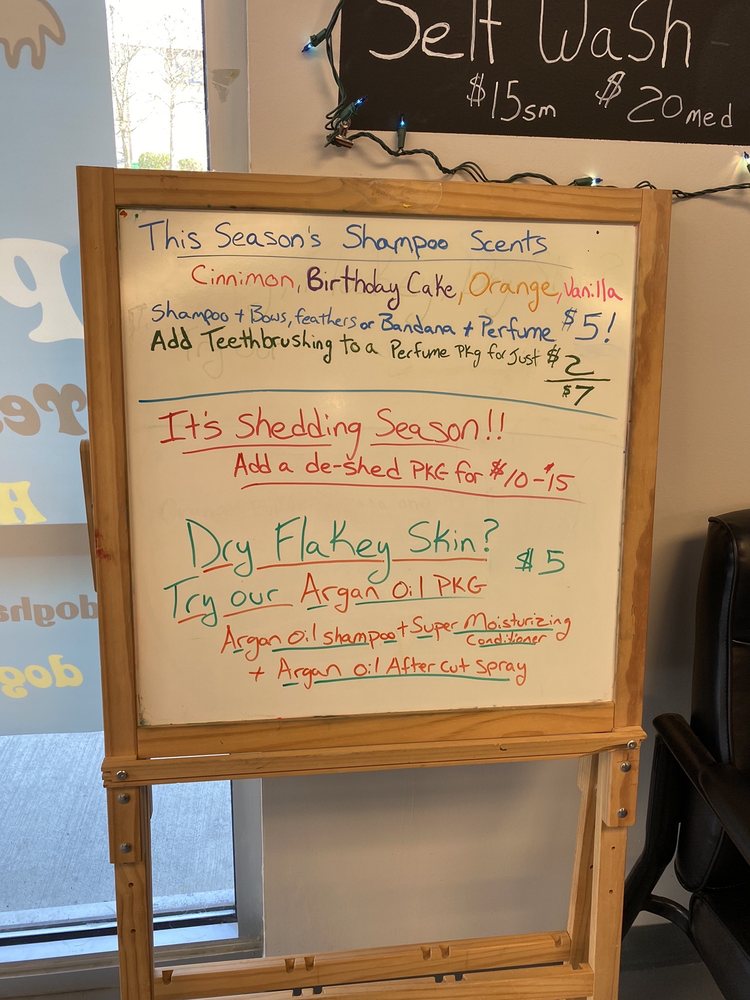 Self Wash
$15sm $20med
This Season's Shampoo Scents
Cinnimon, Birthday Cake, Orange, Vanilla
Shampoo + Bows, feathers or Bandana + Perfume $5!
Add Teethbrushing to a Perfume Pkg for Just $2
$7
It's Shedding Season!!
Add a de-shed PKG for $10-$15
Dry Flakey Skin? $5
Try our Argan Oil PKG
Argan Oil shampoo + Super Moisturizing Conditioner
+ Argan Oil After cut spray
dog